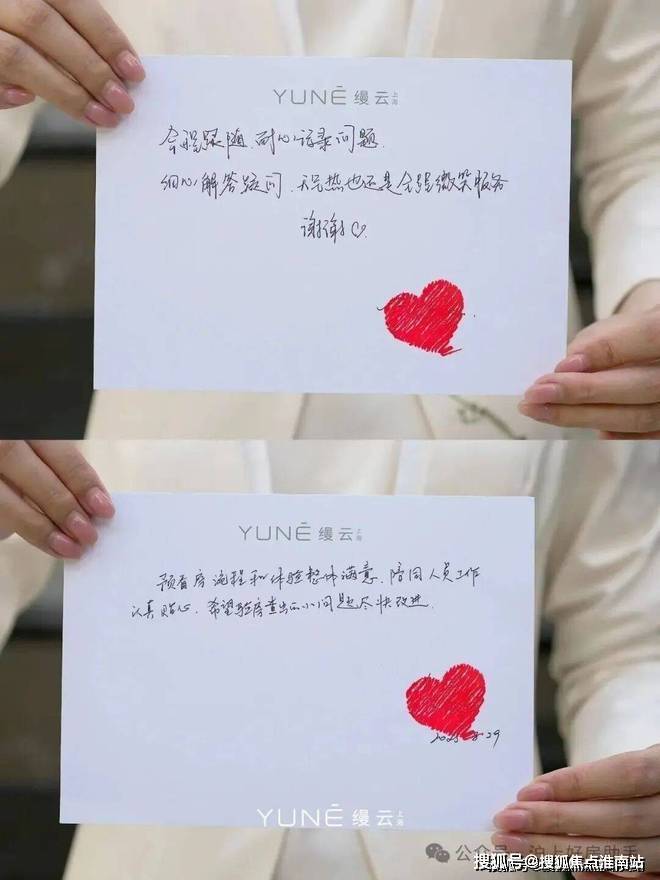 YUNĒ 缦云 上海
全程跟随、耐心记录问题、
细心解答疑问、天气热也还是全程微笑服务
谢谢♡.
YUNĒ 缦云 上海
预看房流程和体验整体满意、陪同人员工作
认真贴心、希望验房查出的小问题尽快改进.
YUNĒ 缦云 上海
公众号 沪上好房助手
搜狐号@搜狐焦点淮南站